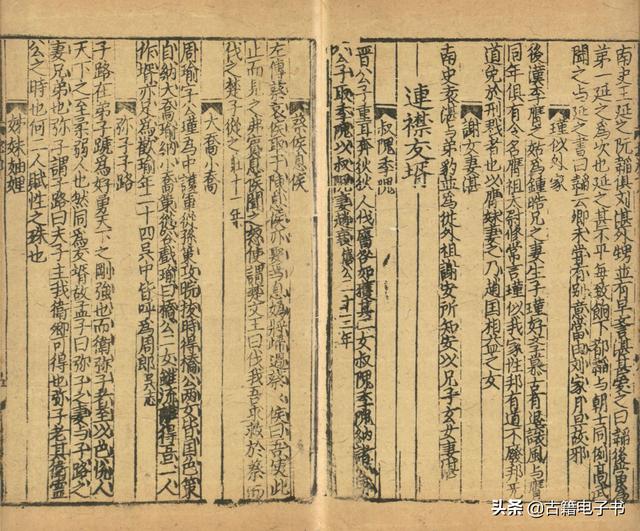 南史王延之阮韜俱劉湛外甥並有早
第一延之為次也延之甚不平每致餉下都韜與朝士同例高武
聞之與延之書曰韜云卿未嘗有別意當由劉家月旦故邪
瑾似外家
後漢李膺之姑為鍾皓兄之妻生子瑾好學慕古有退讓風與膺
同年俱有令名膺祖太尉修常言瑾似我家性邦有道不廢邦無
道免於刑戮者也膺妹妻之乃趙國相益之女
謝女妻湛
南史袁湛與弟豹並為從外祖謝安所知安以兄子玄女妻湛
連襟友壻
叔隗季隗
晉公子重耳奔狄狄人伐廧咎如獲其二女叔隗季隗納諸
公子取季隗以叔隗妻趙衰僖公二十三年
蔡侯息侯
左傳蔡哀侯取于陳息侯亦娶焉息媯將歸過蔡蔡侯曰吾吏也
止而見之弗賓息侯聞之怒使謂楚文王曰伐我吾求救於蔡而
伐之楚子從之莊十一年
大喬小喬
周瑜字公瑾為中護軍從孫策攻皖拔時得橋公兩女皆國色策
自納大喬瑜納小喬策從容戲瑜曰橋公二女雖流離得吾二人
作壻亦足為歡瑜年二十四吳中皆呼為周郎吳志
弥子子路
子路在弟子義為好勇天下之剛強也而衛弥子者至以色悅人
天下之至柔弱也然同為友壻故孟子曰弥子之妻與子路之
妻兄弟也弥子謂子路曰夫子主我衛卿可得也弥子者其衛靈
公之時也何二人賦性之殊也